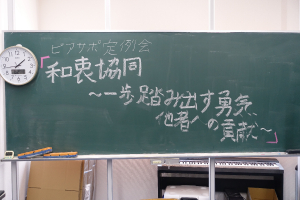 ピアサポ定例会
「和衷協同
〜一歩踏み出す勇気
他者への貢献〜」